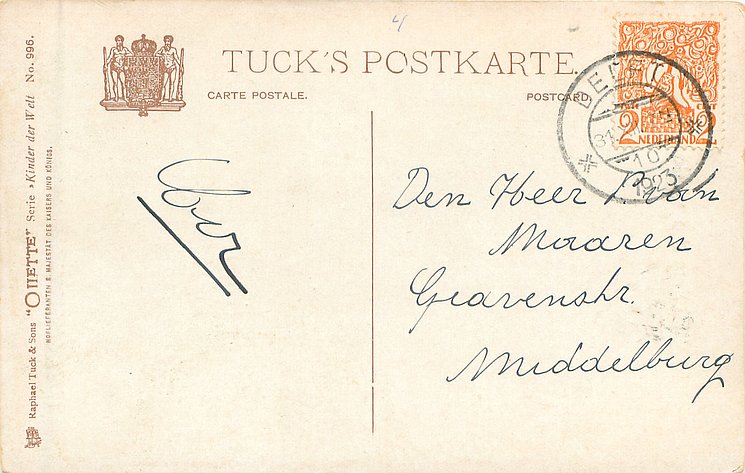 4
TUCK'S POSTKARTE.
CARTE POSTALE. POSTCARD.
DELFT
31
10
1923
2 NEDERLAND 2
Den Heer
Maaren
Gravenstr.
Middelburg
Raphael Tuck & Sons "OILETTE" Serie "Kinder der Welt No. 996.
HOFLIEFERANTEN S. MAJESTÄT DES KAISERS UND KÖNIGS.